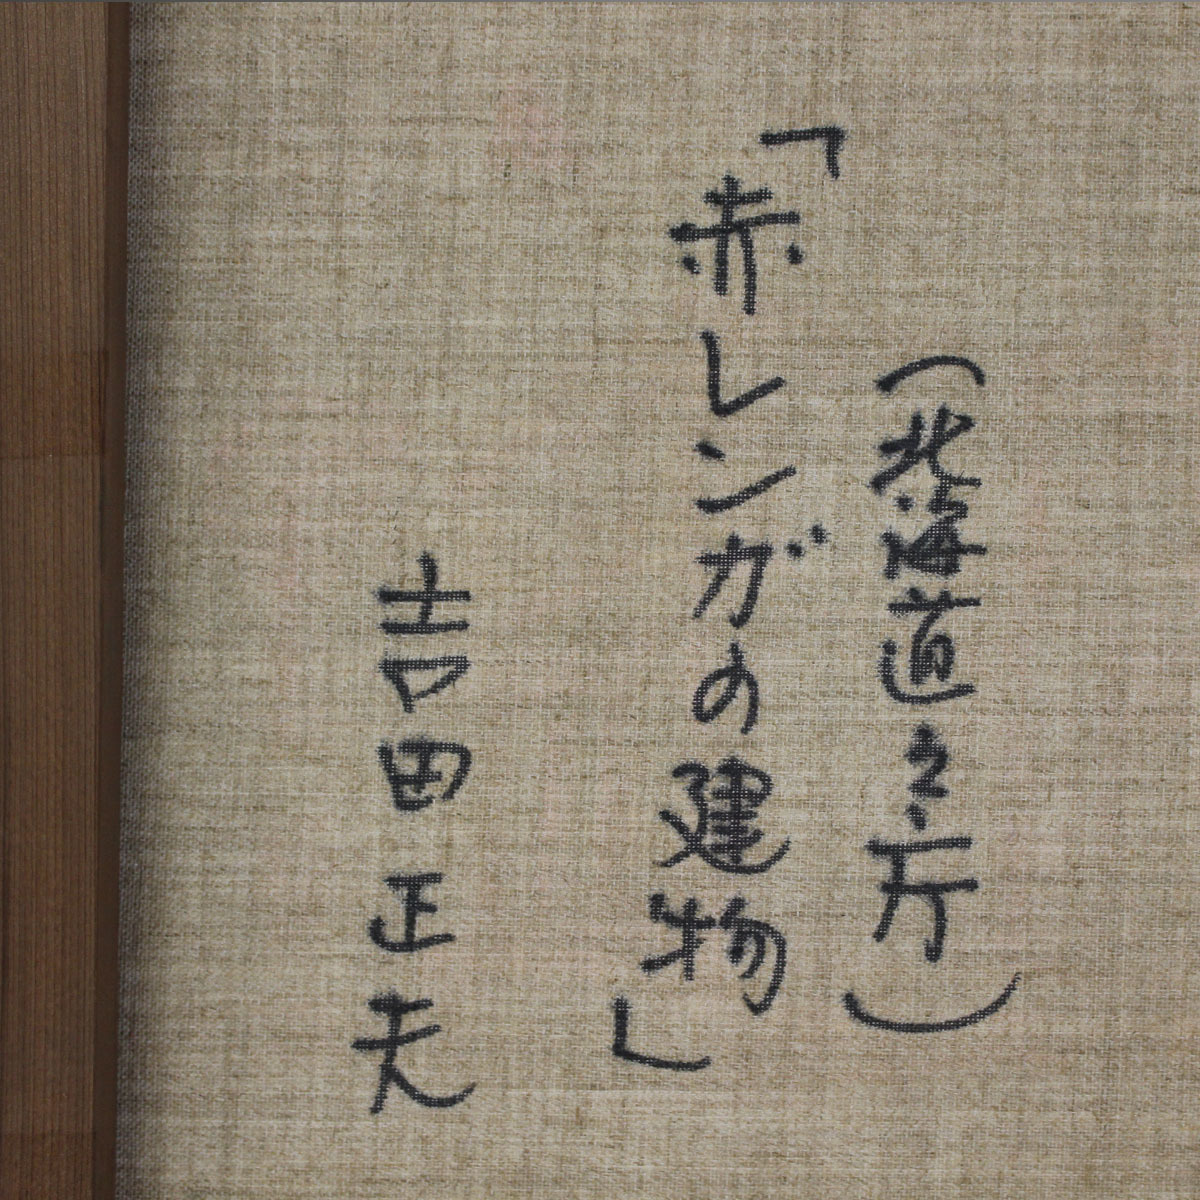 （北海道々庁）
「赤レンガの建物」
吉田正夫